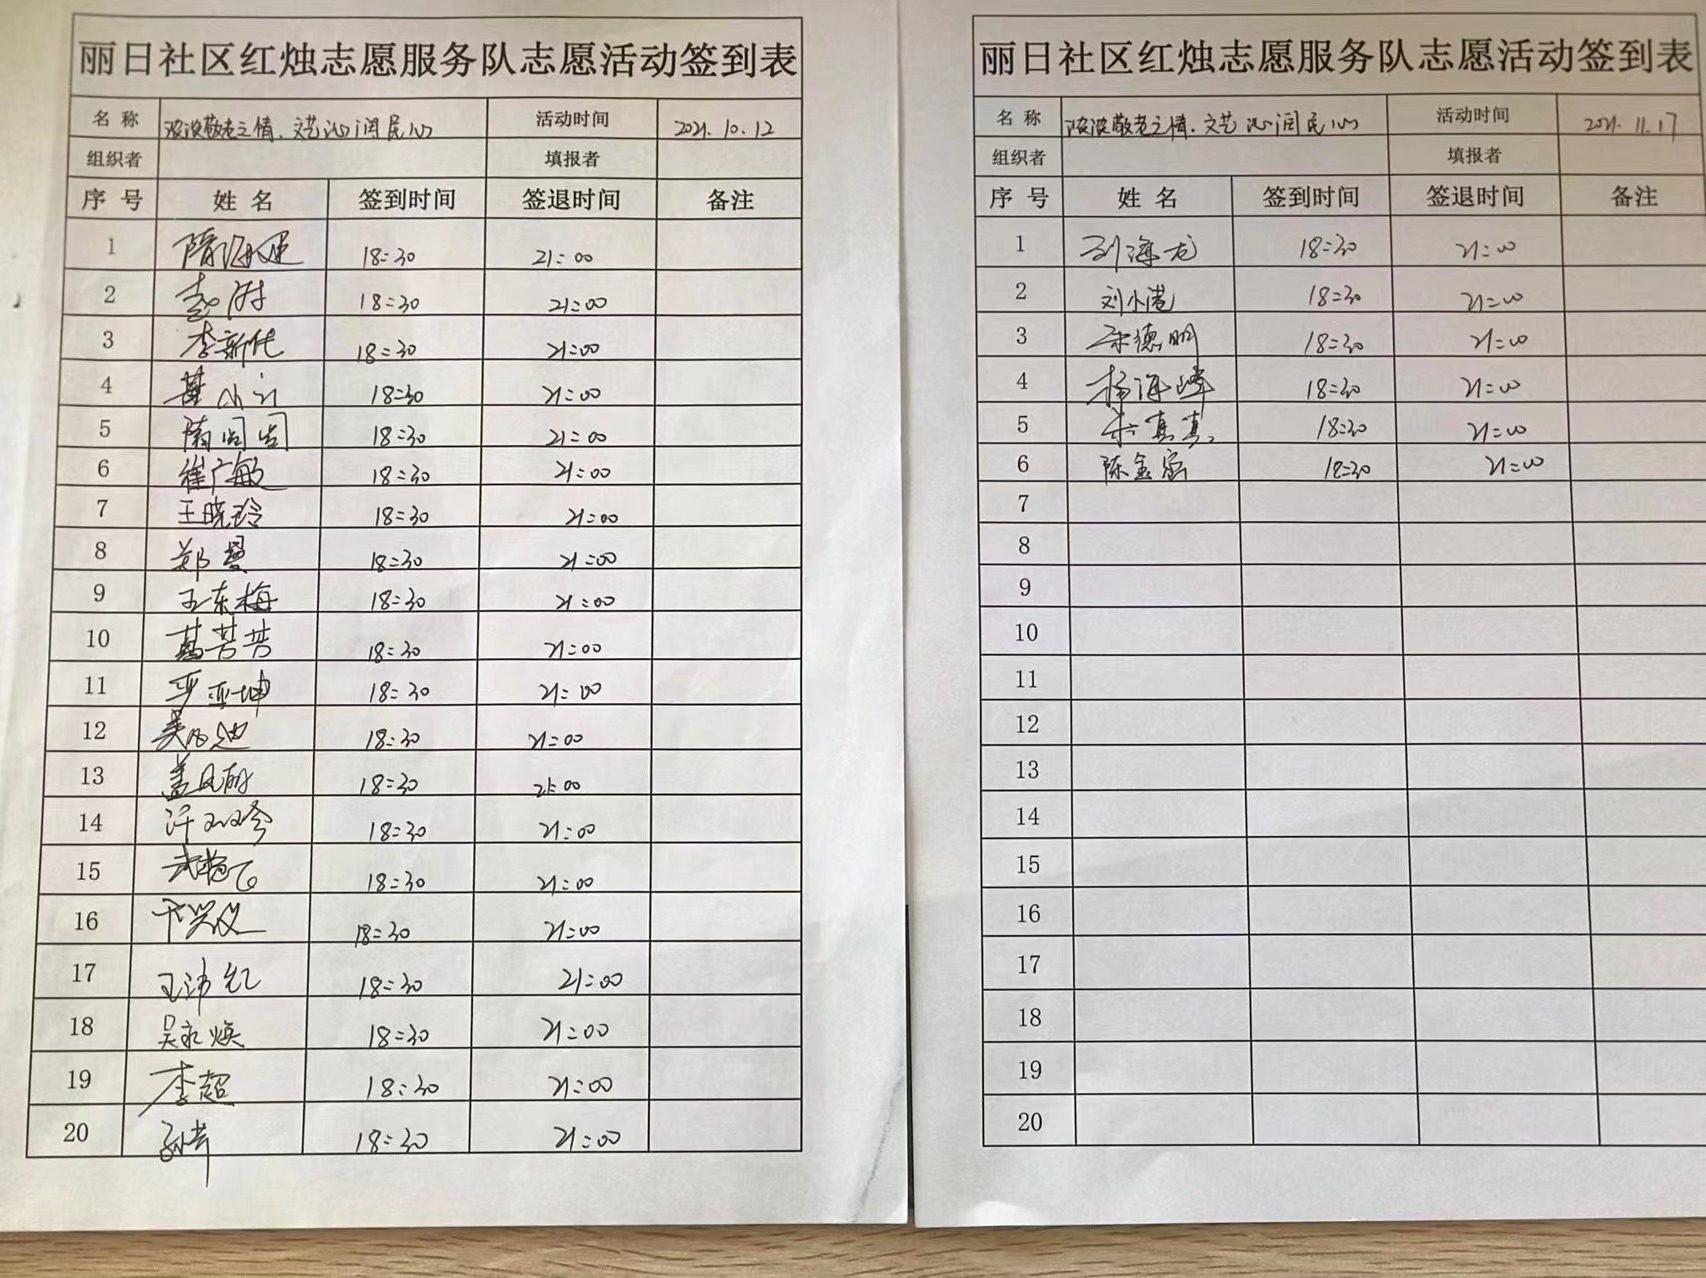 丽日社区红烛志愿服务队志愿活动签到表
名 称 浓浓敬老之情、文艺沁润民心 活动时间 2021.10.12
组织者 填报者
序 号 姓 名 签到时间 签退时间 备注
1 18:30 21:00
2 18:30 21:00
3 李新化 18:30 21:00
4 18:30 21:00
5 18:30 21:00
6 崔广敏 18:30 21:00
7 王晓玲 18:30 21:00
8 郑曼 18:30 21:00
9 王东梅 18:30 21:00
10 葛芳芳 18:30 21:00
11 18:30 21:00
12 18:30 21:00
13 18:30 21:00
14 18:30 21:00
15 18:30 21:00
16 18:30 21:00
17 18:30 21:00
18 吴永焕 18:30 21:00
19 李超 18:30 21:00
20 18:30 21:00
丽日社区红烛志愿服务队志愿活动签到表
名 称 浓浓敬老之情、文艺沁润民心 活动时间 2021.11.17
组织者 填报者
序 号 姓 名 签到时间 签退时间 备注
1 刘海龙 18:30 21:00
2 刘小港 18:30 21:00
3 宋德明 18:30 21:00
4 杨海峰 18:30 21:00
5 18:30 21:00
6 18:30 21:00
7
8
9
10
11
12
13
14
15
16
17
18
19
20